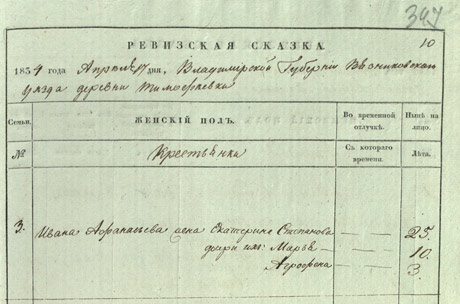 347
10
РЕВИЗСКАЯ СКАЗКА.
1834 года Апреля 17 дня, Владимирской Губернии Вязниковскаго
уезда деревни Тимофеевки
Семьи. ЖЕНСКІЙ ПОЛЪ. Во временной отлучкѣ. Нынѣ на лицо.
№ Крестьянка Съ котораго времени. Лѣта.
3. Ивана Афанасьева жена Екатерина Степанова — — 25.
дочери их: Марья — — 10.
Агрофена — — 3.